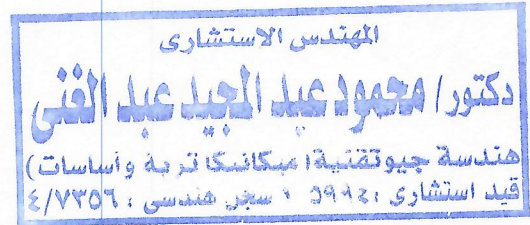 المهندس الاستشارى
دكتور/ محمود عبد المجيد عبد الغنى
هندسة جيوتقنية (ميكانيكا تربة وأساسات)
قيد استشارى : ٥٩٩٤ ، سجل هندسى : ٤/٧٣٥٦